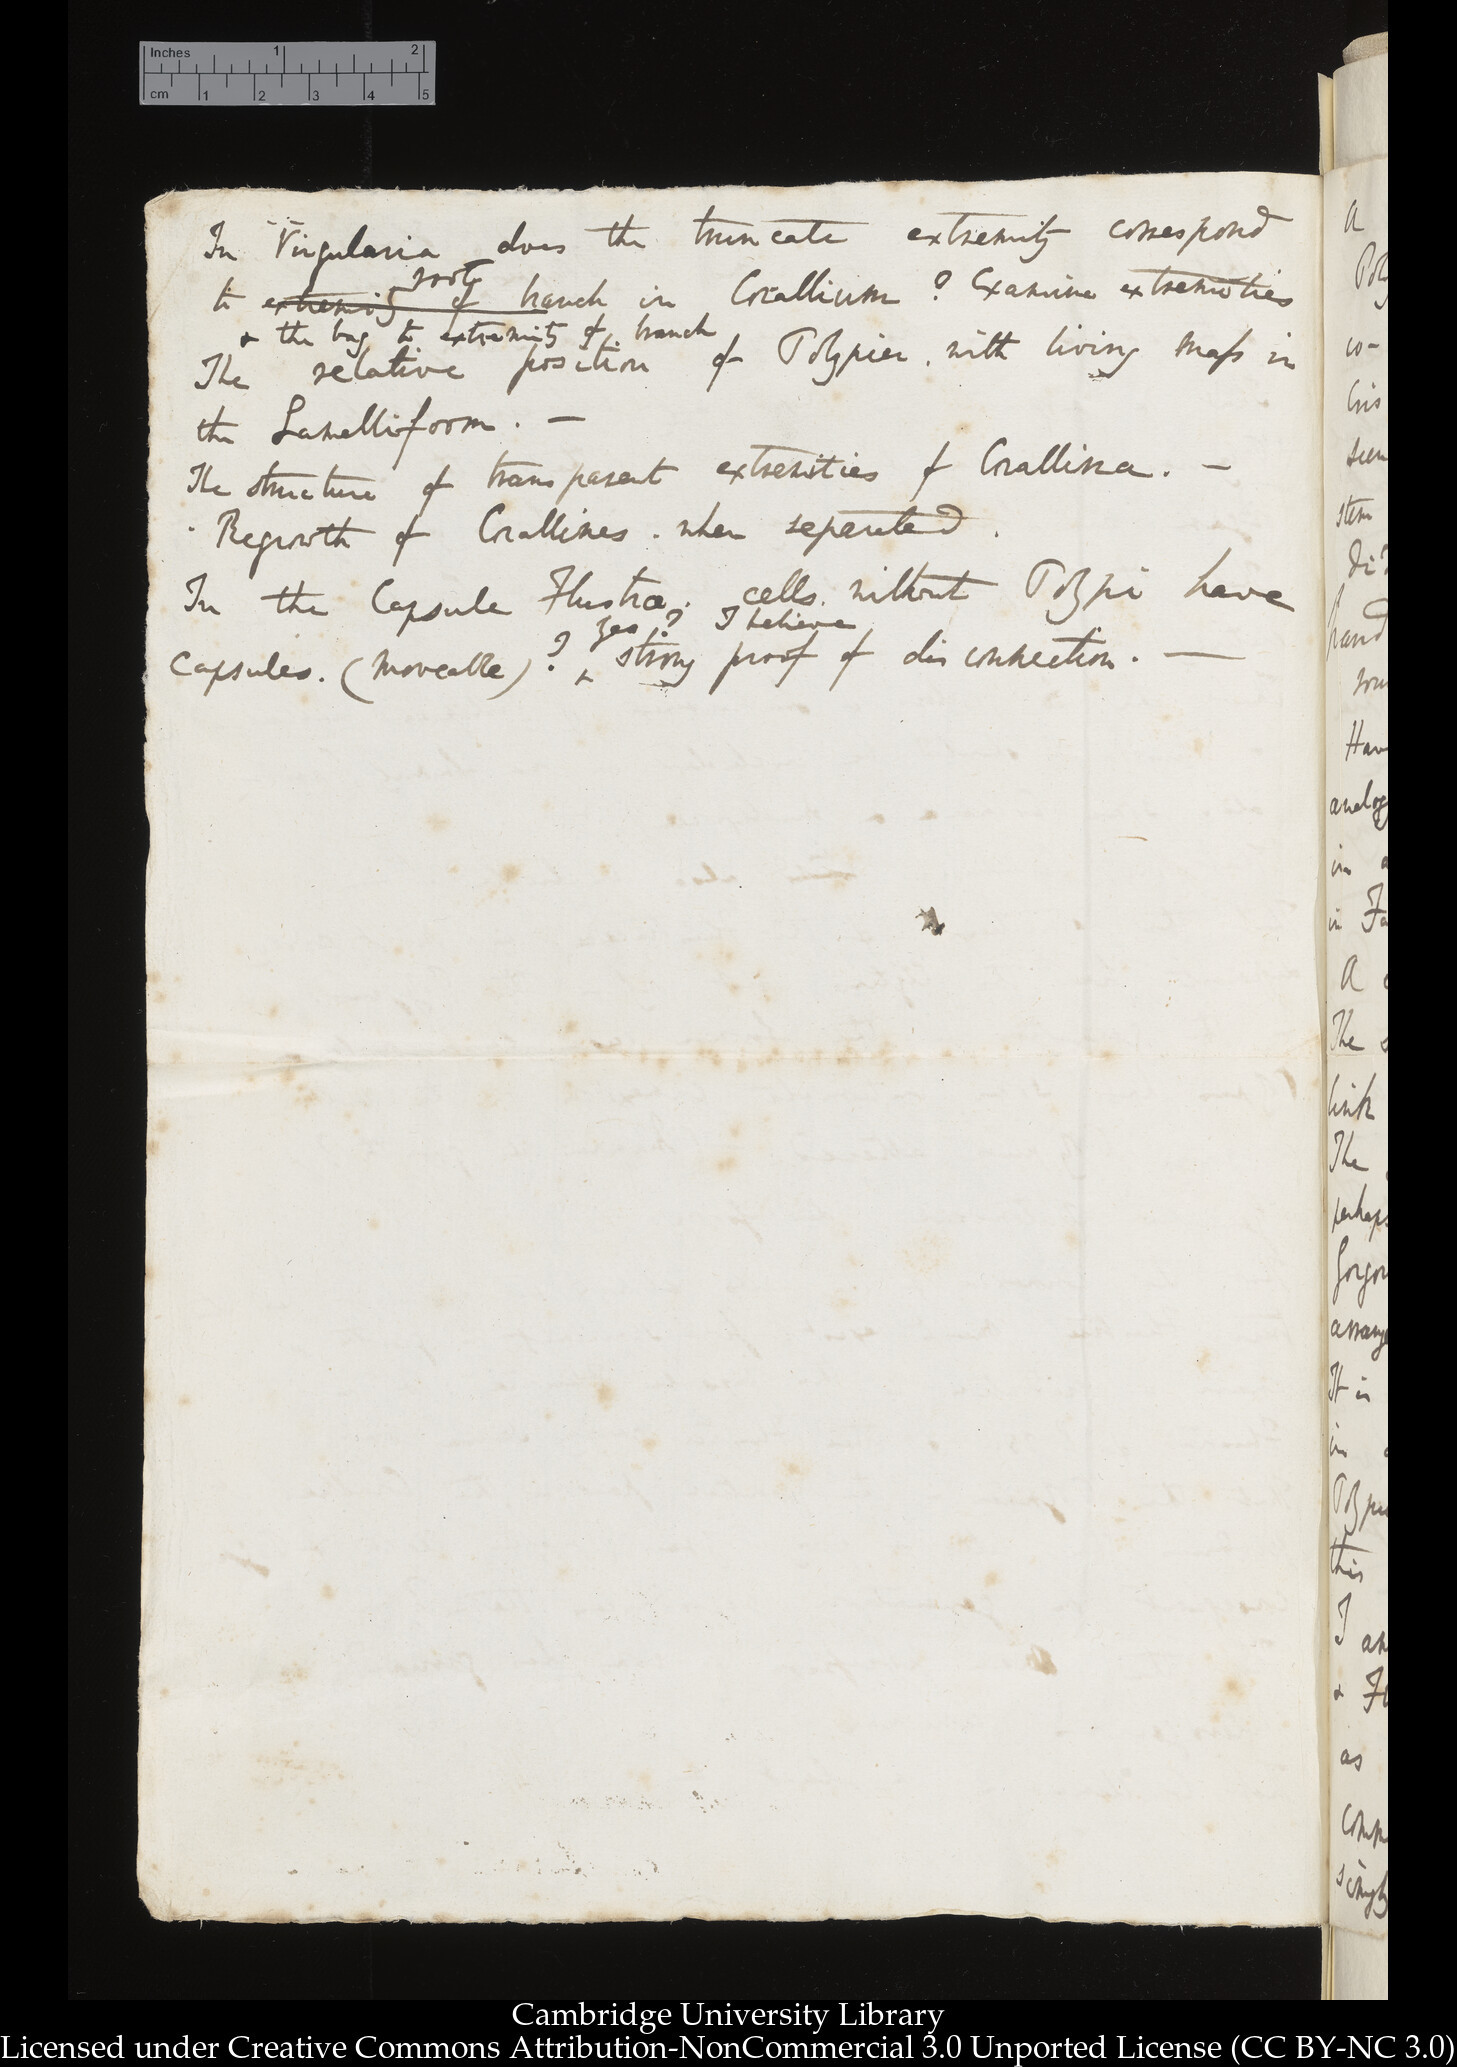 Inches 1 2
cm 1 2 3 4 5
In Virgularia does the truncate extremity correspond
root
to extremity of branch in Corallium? Examine extremities
& the bag to extremity of branch
The relative position of Polypier. with living mass in
the Lamelliform. —
The structure of transparent extremities of Corallina. —
Regrowth of Corallines. when separated.
In the Capsule Flustra. cells. without Polypi have
yes? I believe
capsules. (moveable)? strong proof of disconnection. —
A
co-
seen
stem
Hav
analog
in
in Fa
A
The
link
The
perhaps
Gorgon
arrange
It is
in
this
I am
& Fl
as
comp
singly
Cambridge University Library
Licensed under Creative Commons Attribution-NonCommercial 3.0 Unported License (CC BY-NC 3.0)